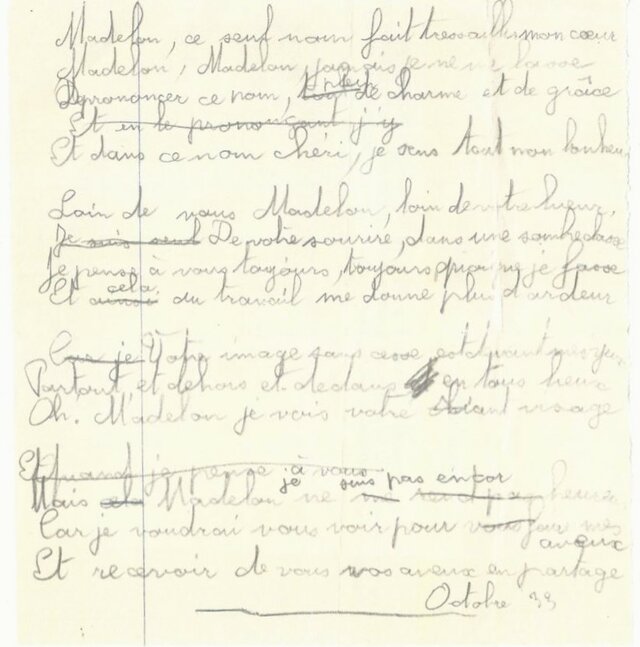 Madelon, ce seul nom fait tressaillir mon cœur
Madelon, Madelon, jamais je ne me lasse
De prononcer ce nom, de charme et de grâce
Et en le prononçant j'y
Et dans ce nom chéri, je sens tout mon bonheur
Loin de vous Madelon, loin de votre lueur,
Je suis seul De votre sourire, dans une sombre classe
Je pense à vous toujours, toujours quoique je fasse
Et ainsi cela du travail me donne plus d'ardeur
Car je Votre image sans cesse est devant mes yeux
Partout, et dehors et dedans en tous lieux
Oh. Madelon je vois votre riant visage
Et Quand je pense à vous
je suis pas encor
Mais Madelon ne me heureux
Car je voudrai vous voir pour vous faire mes
aveux
Et recevoir de vous vos aveux en partage
Octobre 33